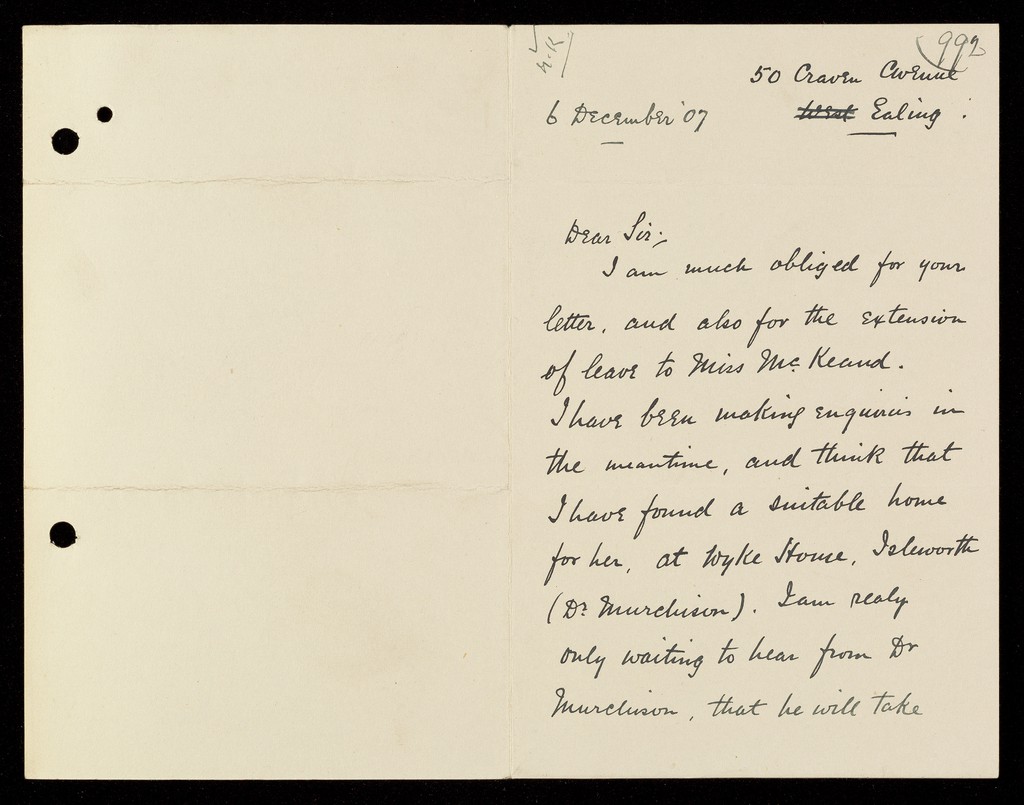 992
50 Craven Avenue
6 December '07 West Ealing.
Dear Sir;
I am much obliged for your
letter, and also for the extension
of leave to Miss McKeand.
I have been making enquiries in
the meantime, and think that
I have found a suitable home
for her, at Wyke House, Isleworth
(Dr Murchison). I am realy
only waiting to hear from Dr
Murchison, that he will take